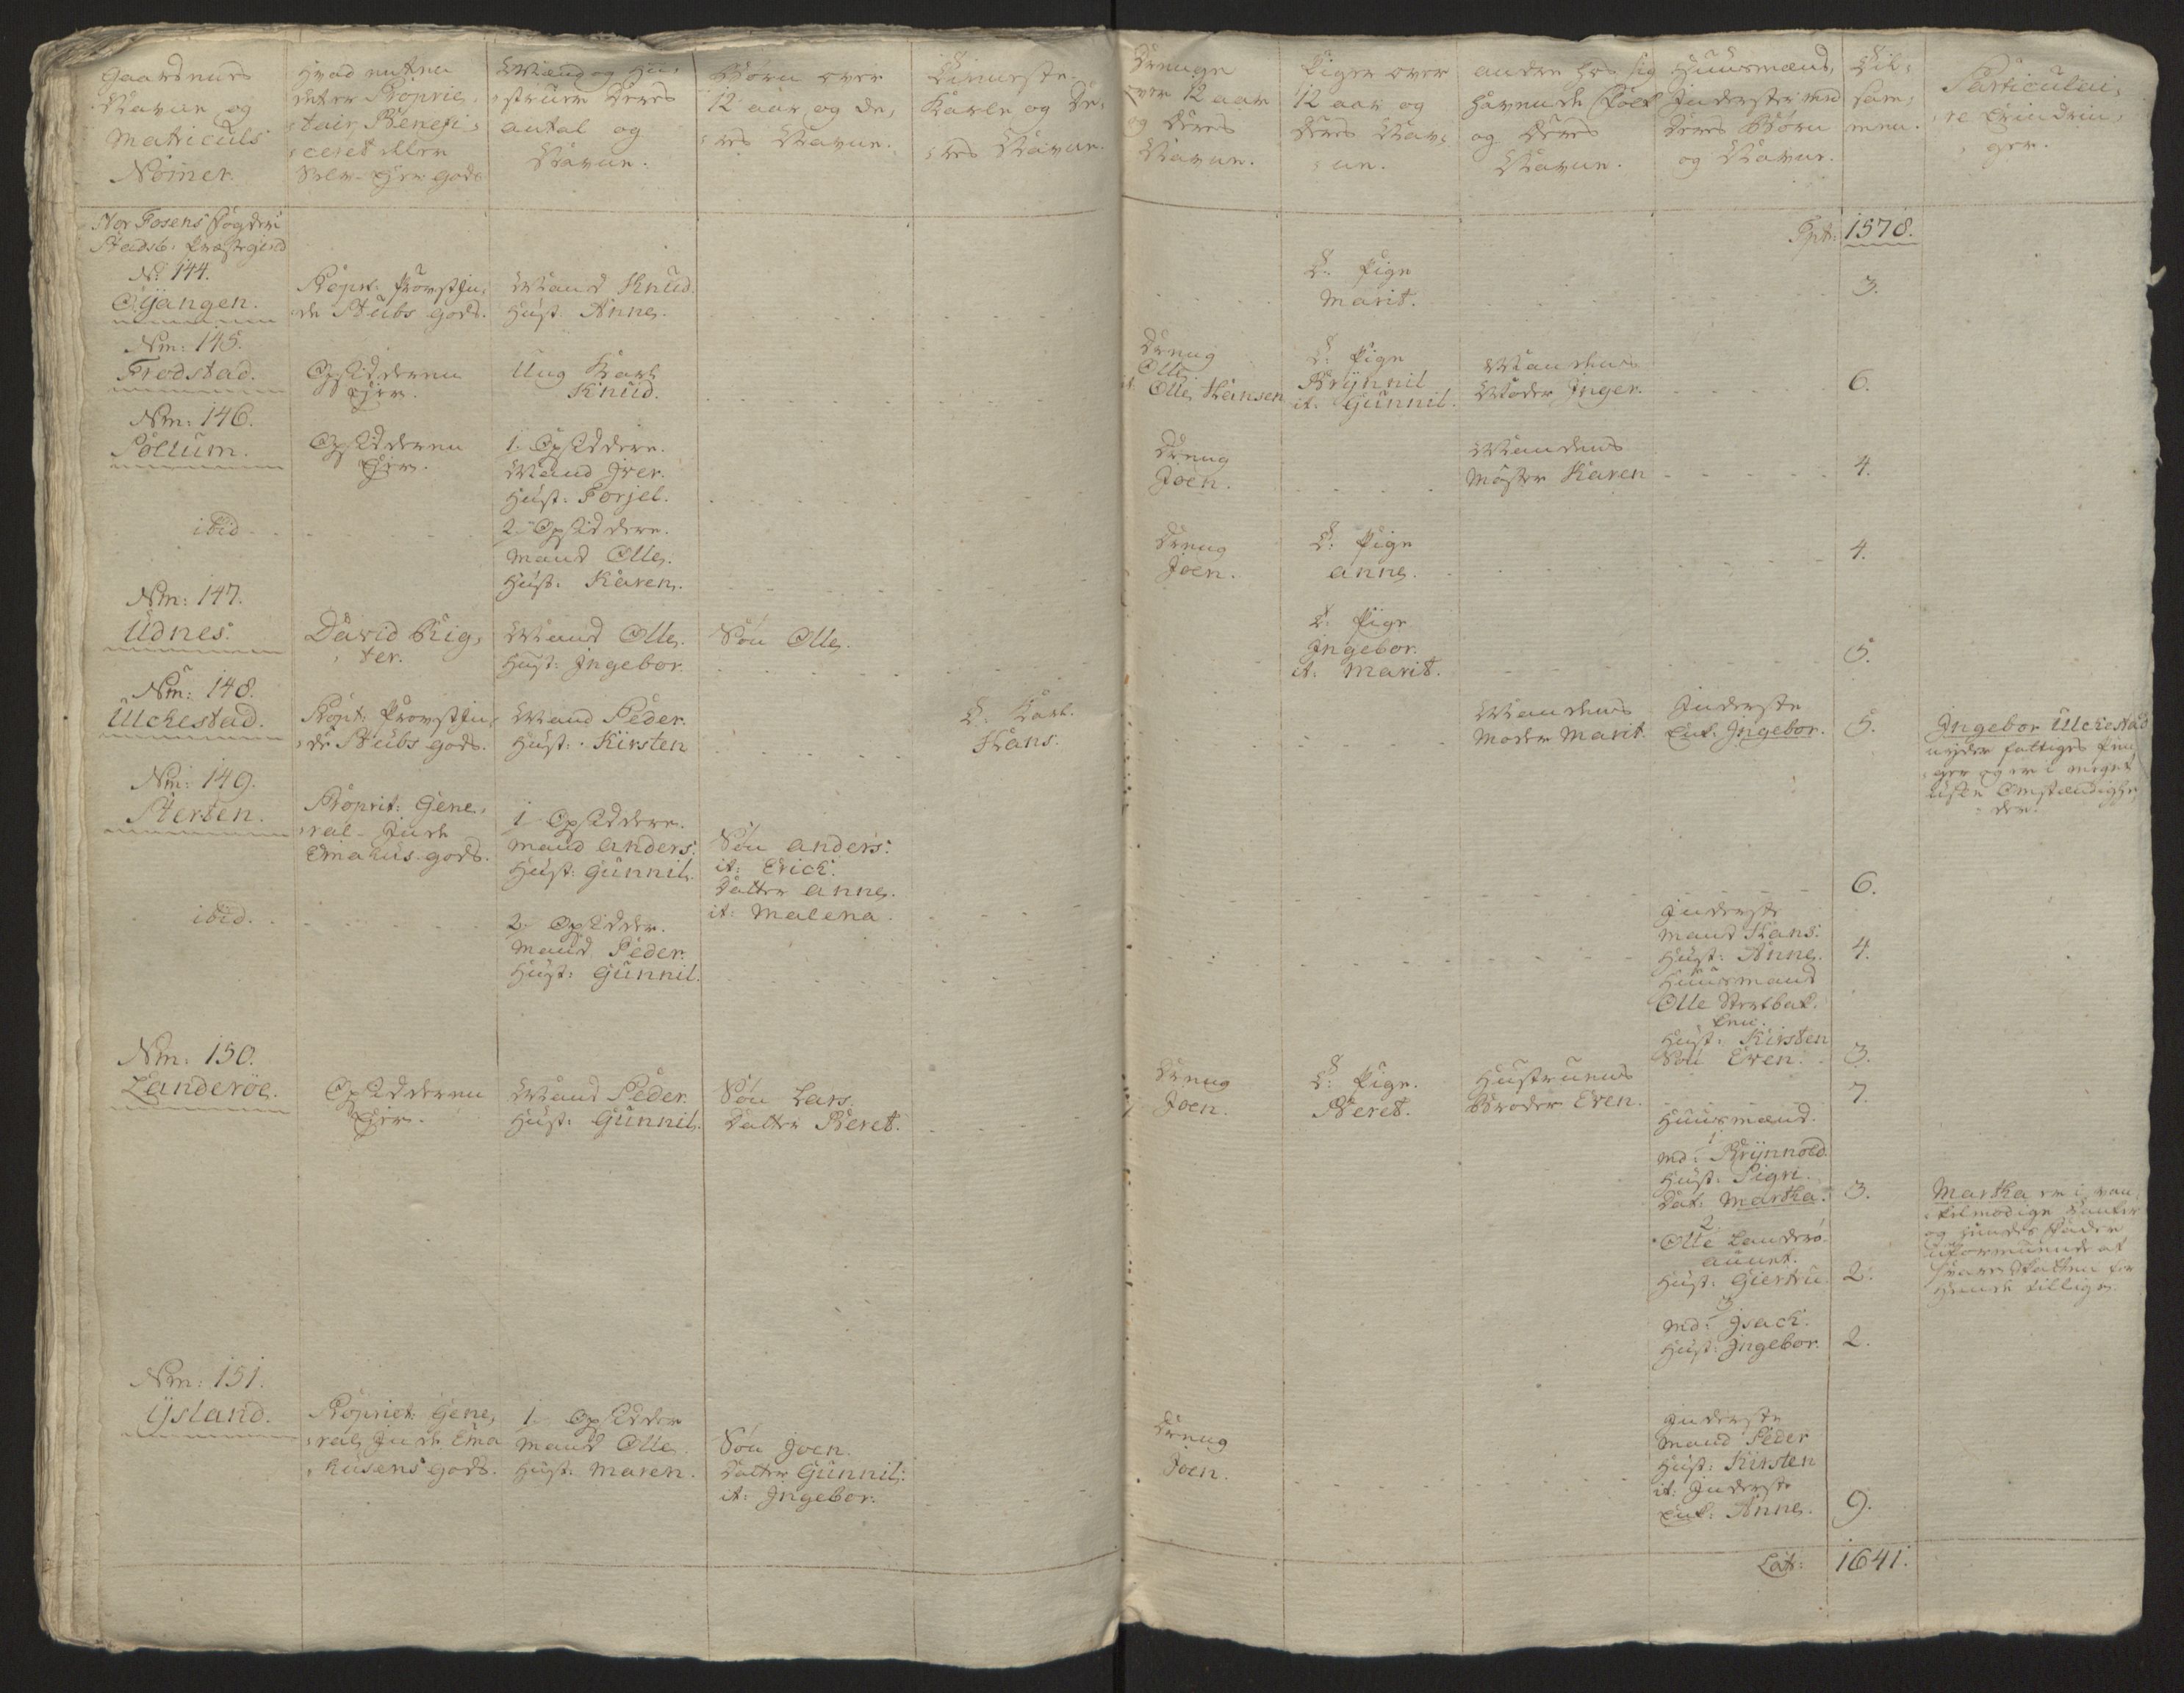 Gaardenes
Navne og
Matriculs
Nomer.
Hvad enten
det er Proprie,
tair, Benefi,
ceret eller
Selv-Ejer gods
Mænd og Hu,
struer Deres
antal og
Navne.
Børn over
12 aar og de,
res Navne.
Tieneste
Karle og De,
res Navne.
Drenge
over 12 aar
og Deres
Navne.
Piger over
12 aar og
Deres Nav,
ne.
andre hos sig
havende Folk
og Deres
Navne.
Huusmænd,
Inderster med
Deres Børn
og Navne.
Til,
sam,
men.
Particulai,
re Erindrin,
ger.
Nor Fosens Fogderi
Stadsb: Præstegield
Tpt: 1578.
No 144.
Opangen.
Propr: Provstin,
de Stubs gods.
Mand Knud.
Hust: Anne.
T: Pige
Marit.
3.
Nm: 145.
Frodstad.
Opsidderen
Ejer.
Ung Karl
Knud.
Dreng
Olle
it. Olle Hansen
T: Pige
Brÿnnil
it. Gunnil.
Mandens
Moder Inger.
6.
Nm: 146.
Sollum.
Opsidderen
Ejer.
1. Opsiddere.
Mand Iver.
Hust: Torjel.
Dreng
Joen.
Mandens
Moster Karen
4.
ibid
2. Opsiddere.
Mand Olle.
Hust: Karen.
Dreng
Joen.
T: Pige
Anne.
4.
Nm: 147.
Udnes.
David Rig,
ter.
Mand Olle.
Hust: Ingebor.
Søn Olle.
T: Pige
Ingebor.
it: Marit.
5.
Nm: 148.
Ulchestad.
Propt: Provstin,
de Stubs gods.
Mand Peder.
Hust: Kirsten
T: Karl.
Hans.
Mandens
Moder Marit.
Inderste
Enk: Ingebor.
5.
Ingebor Ulchestad
nyder fattiges Pen,
ger og er i meget
usle Omstændighe,
der.
Nm: 149.
Sterten.
Proprit: Gene,
ral- Inde
Emahus gods.
1. Opsiddere.
Mand Anders:
Hust: Gunnil.
Søn Anders:
it: Erich.
Datter Anne.
it: Malena.
6.
ibid.
2. Opsidder.
Mand Peder.
Hust: Gunnil.
Inderste
Mand Hans:
Hust: Anne.
4.
Huusmand
Olle Stertbak,
ken.
Hust: Kirsten
Søn Even.
3.
Nm: 150.
Landerøe.
Opsidderen
Ejer.
Mand Peder.
Hust: Gunnil.
Søn Lars.
Datter Beret.
Dreng
Joen.
T: Pige.
Beret.
Hustruens
Broder Even.
7.
Huusmænd.
1
Md: Brÿnnold.
Hust: Sigri.
Dat: Martha.
3.
Martha er i van,
og hendes Fader
uformuende at
svare Skatten for
hende tillige.
2.
Olle Landerø,
aunet.
Hust: Giertru.
2.
3
Md: Isach.
Hust: Ingebor.
2.
Nm: 151.
Ÿsland.
Propriet: Gene,
ral, Inde Ema
husens gods.
1. Opsidder
Mand Olle.
Hust: Maren.
Søn Joen.
Datter Gunnil:
it: Ingebor.
Dreng
Joen.
Inderste
Mand Peder
Hust: Kirsten
it: Inderste
Enk: Anne.
9.
Lat: 1641.